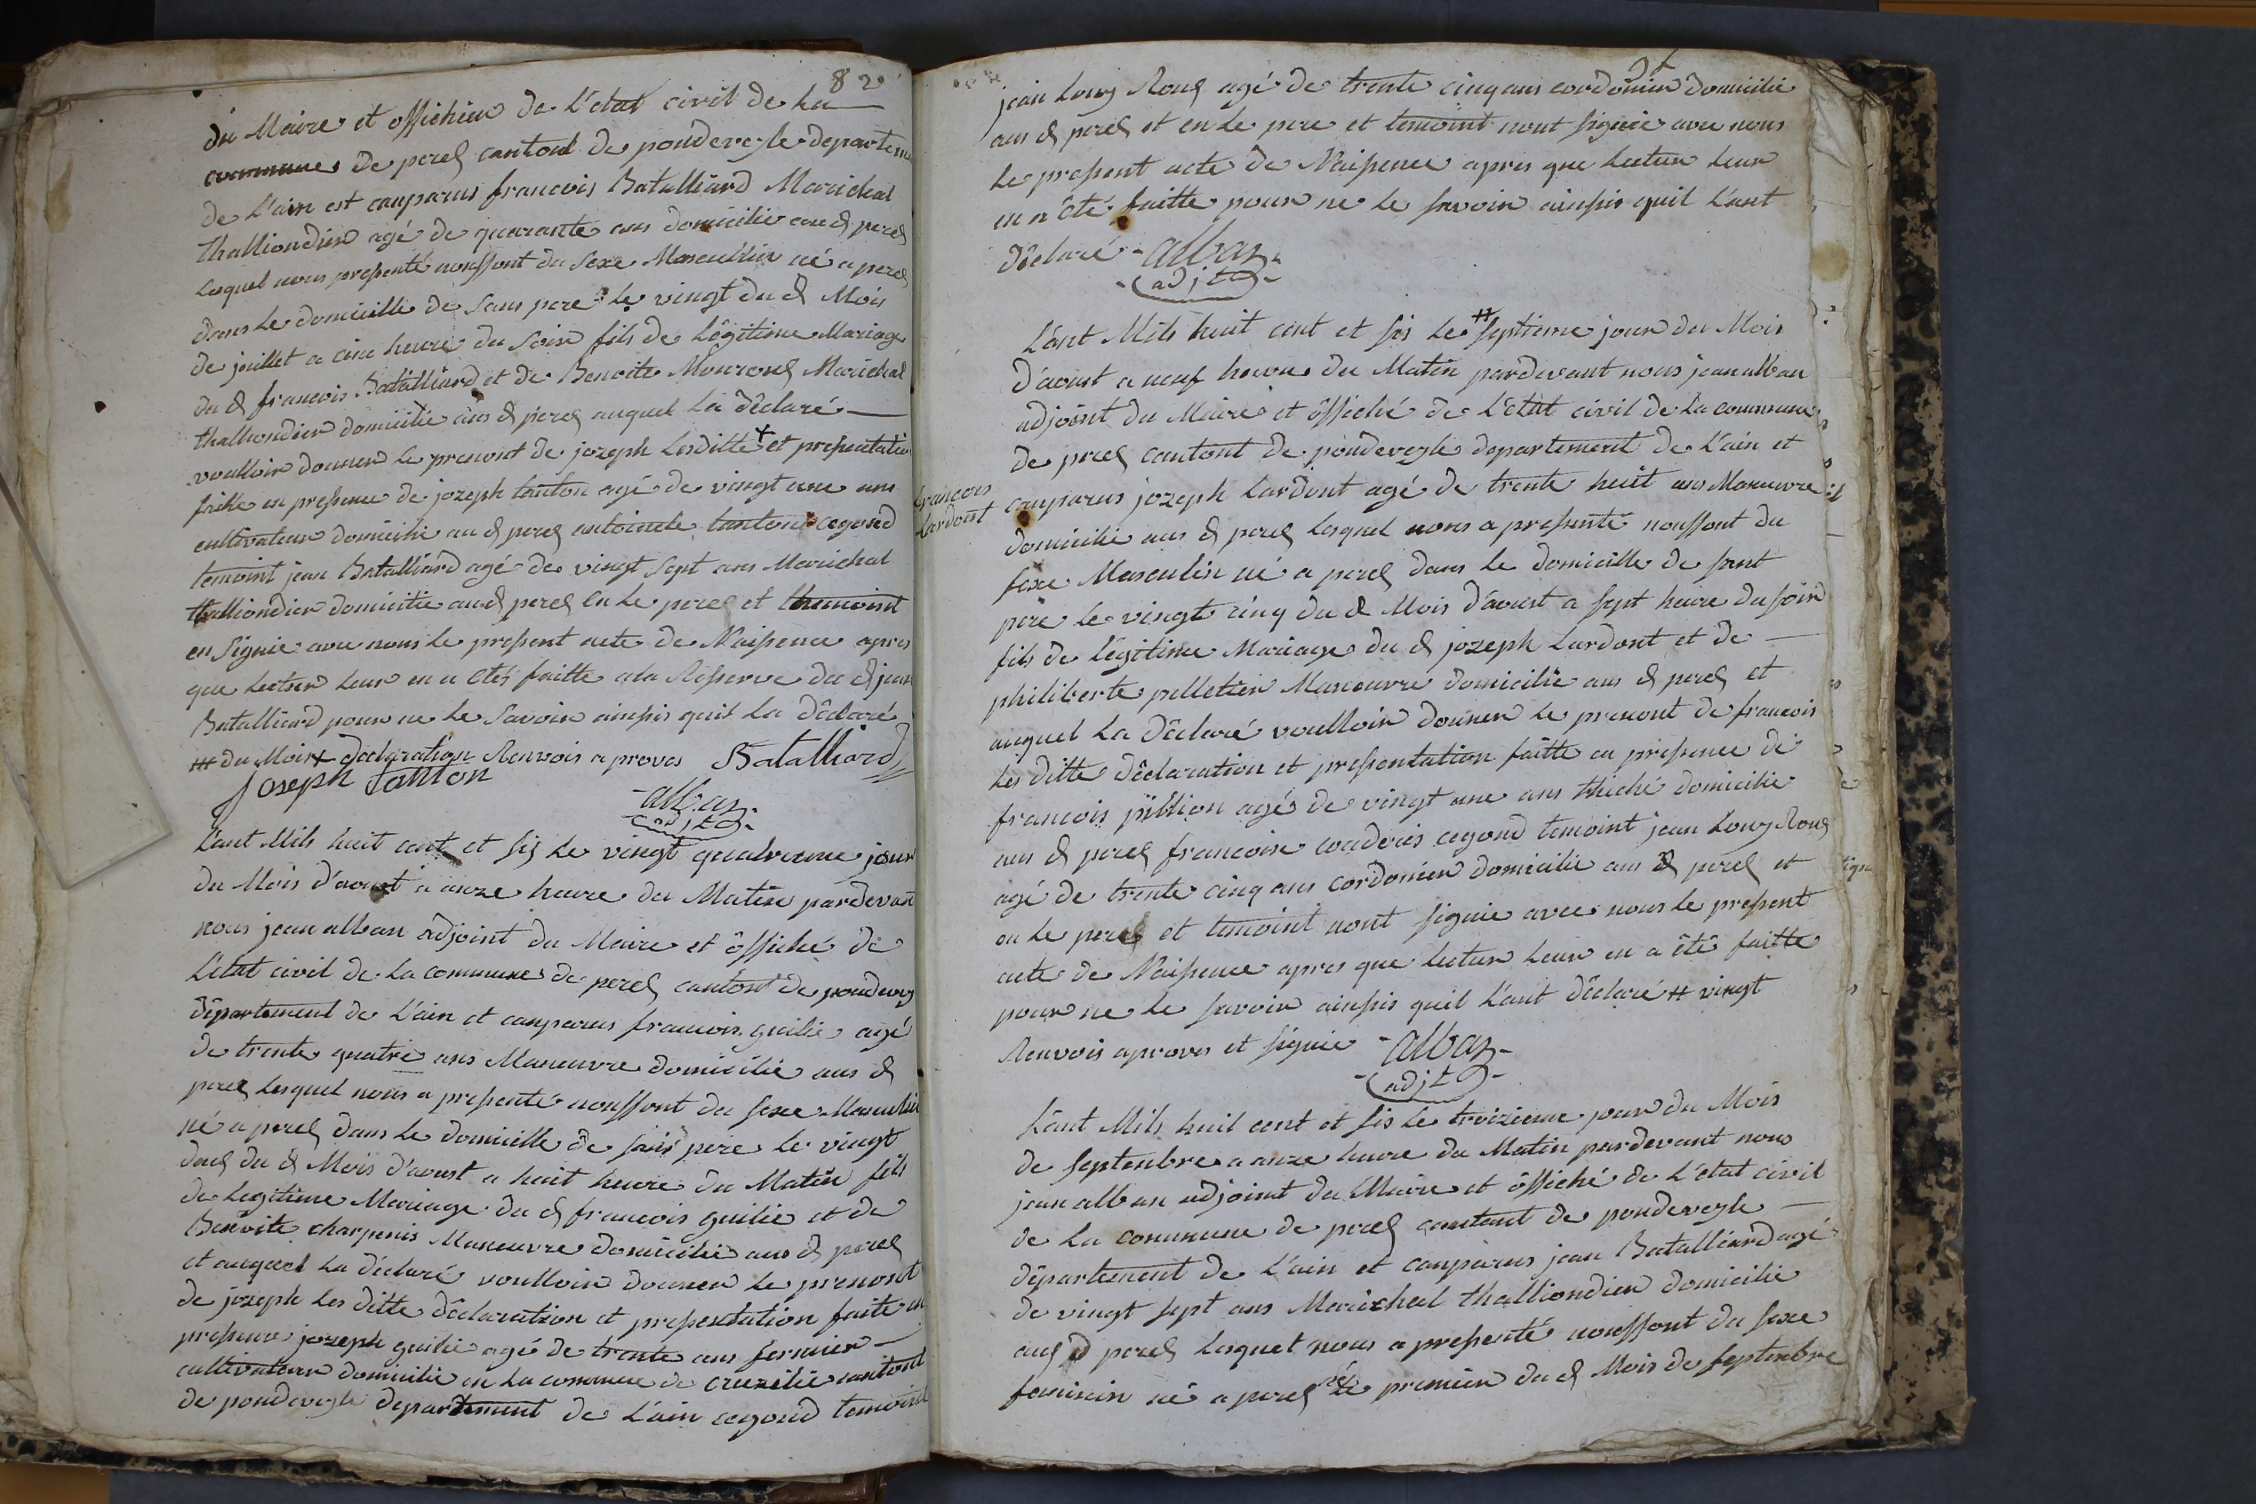 82
du Maire et offichieu de L'etat civil de La
commune de perel cantont de pondevesle departeme
de L'ain est canparus francois Batalliard Marichal
thalliondier agé de quarante ans domicilié aus d perel
Lesquel nous presenté nouffont du sexe Masculin né a perel
dans Le domicille de sans pere Le vingt du d Mois
de jeuillet a cinc heure du Soir fils de Légitime Mariage
du d francois Batalliard et de Benoite Monrous Marichal
thalliondier domicilié aus d perel auquel La déclaré
voulloir donner Le prenont de jozeph Lesditte + et presentation
faitte en presence de jozeph tanton agé de vingt une ans
cultivateur domicilié au d perel cegond
temoint jean Batalliard agé de vingt sept ans Marichal
thalliondier domicilié aus d perel en Le perel et themoint
en Signie avec nous Le present acte de Naissence apres
que Lecteur Leur en a étés faitte a la Reserve du d jean
Batalliard pour ne Le Savoir ainssis quil La déclaré
du Mois + declaration Renvois aprovos Batalliard
Joseph Tanton
alban
adjt
L'ant Mils huit cent et sis Le vingt quatrieme jour
du Mois d'aoust a onze heure du Matin pardevant
nous jean alban adjoint du Maire et ôffiché de
L'état civil de La commune de perel cantont de pondevey
département de L'ain et canparus francois guilié agé
de trente quatre ans Maneuvre domicilié aus d
perel Lesquel nous a presenté nouffont du sexe Masculin
né a perel dans Le domicille de sans pere Le vingt
deus du d Mois d'aoust a huit heure du Matin fils
de Legitime Mariage du d francois guilié et de
Benoite charpenis Maneuvre domicilié aus d perel
et auquel La déclaré voulloir donner Le prenont
de jozeph Les ditte déclaration et presentation faite en
presence jozeph guilié agé de trente ans fermier
cultivateur domicilié en La commune de cruzilie cantont
de pondevesle departement de L'ain cegond temoint
jean Louy Rous agé de trente cinq ans cordonier domicilié
aus d perel et en Le pere et temoint nont signié avec nous
Le present acte de Naissence apres que Lecteur Leur
en a été faitte pour ne Le savoir ainssis quil L'ant
déclaré alban
adjt
L'ant Mils huit cent et sis Le # septieme jour du Mois
d'aoust a neuf heure du Matin pardevant nous jean alban
adjoint du Maire et ôffiché de L'état civil de La commune
de perel cantont de pondevesle departement de L'ain et
francois
Lardont
canparus jozeph Lardont agé de trente huit ans Maneuvre
domicilié aus d perel Lesquel nous a presenté nouffont du
sexe Masculin né a perel dans Le domicille de sont
pere Le vingt cinq du d Mois d'aoust a sept heure du soir
fils de Légitime Mariage du d jozeph Lardont et de
philiberte pelletier Maneuvre domicilié aus d perel et
auquel La déclaré voulloir donner Le prenont de francois
Les ditte déclaration et presentation faitte en presence de
francois agé de vingt une ans domicilié
aus d perel cegond temoint jean Louy Rous
agé de trente cinq ans cordonier domicilié aus d perel et
en Le perel et temoint nont signie avec nous Le present
acte de Naissence apres que Lecteur Leur en a été faitte
pour ne Le savoir ainssis quil L'ant déclaré # vingt
Renvois aproves et signie alban
adjt
L'ant Mils huit cent et sis Le troizieme jour du Mois
de septenbre a onze heure du Matin pardevant nous
jean alban adjoint du Maire et ôffiché de L'état civil
de La commune de perel cantont de pondevesle
département de L'ain et canparus jean Batalliard agé
de vingt sept ans Marichal thalliondier domicilié
aus d perel Lesquel nous a presenté nouffont du sexe
feminin né a perel Le premier du d Mois de septenbre